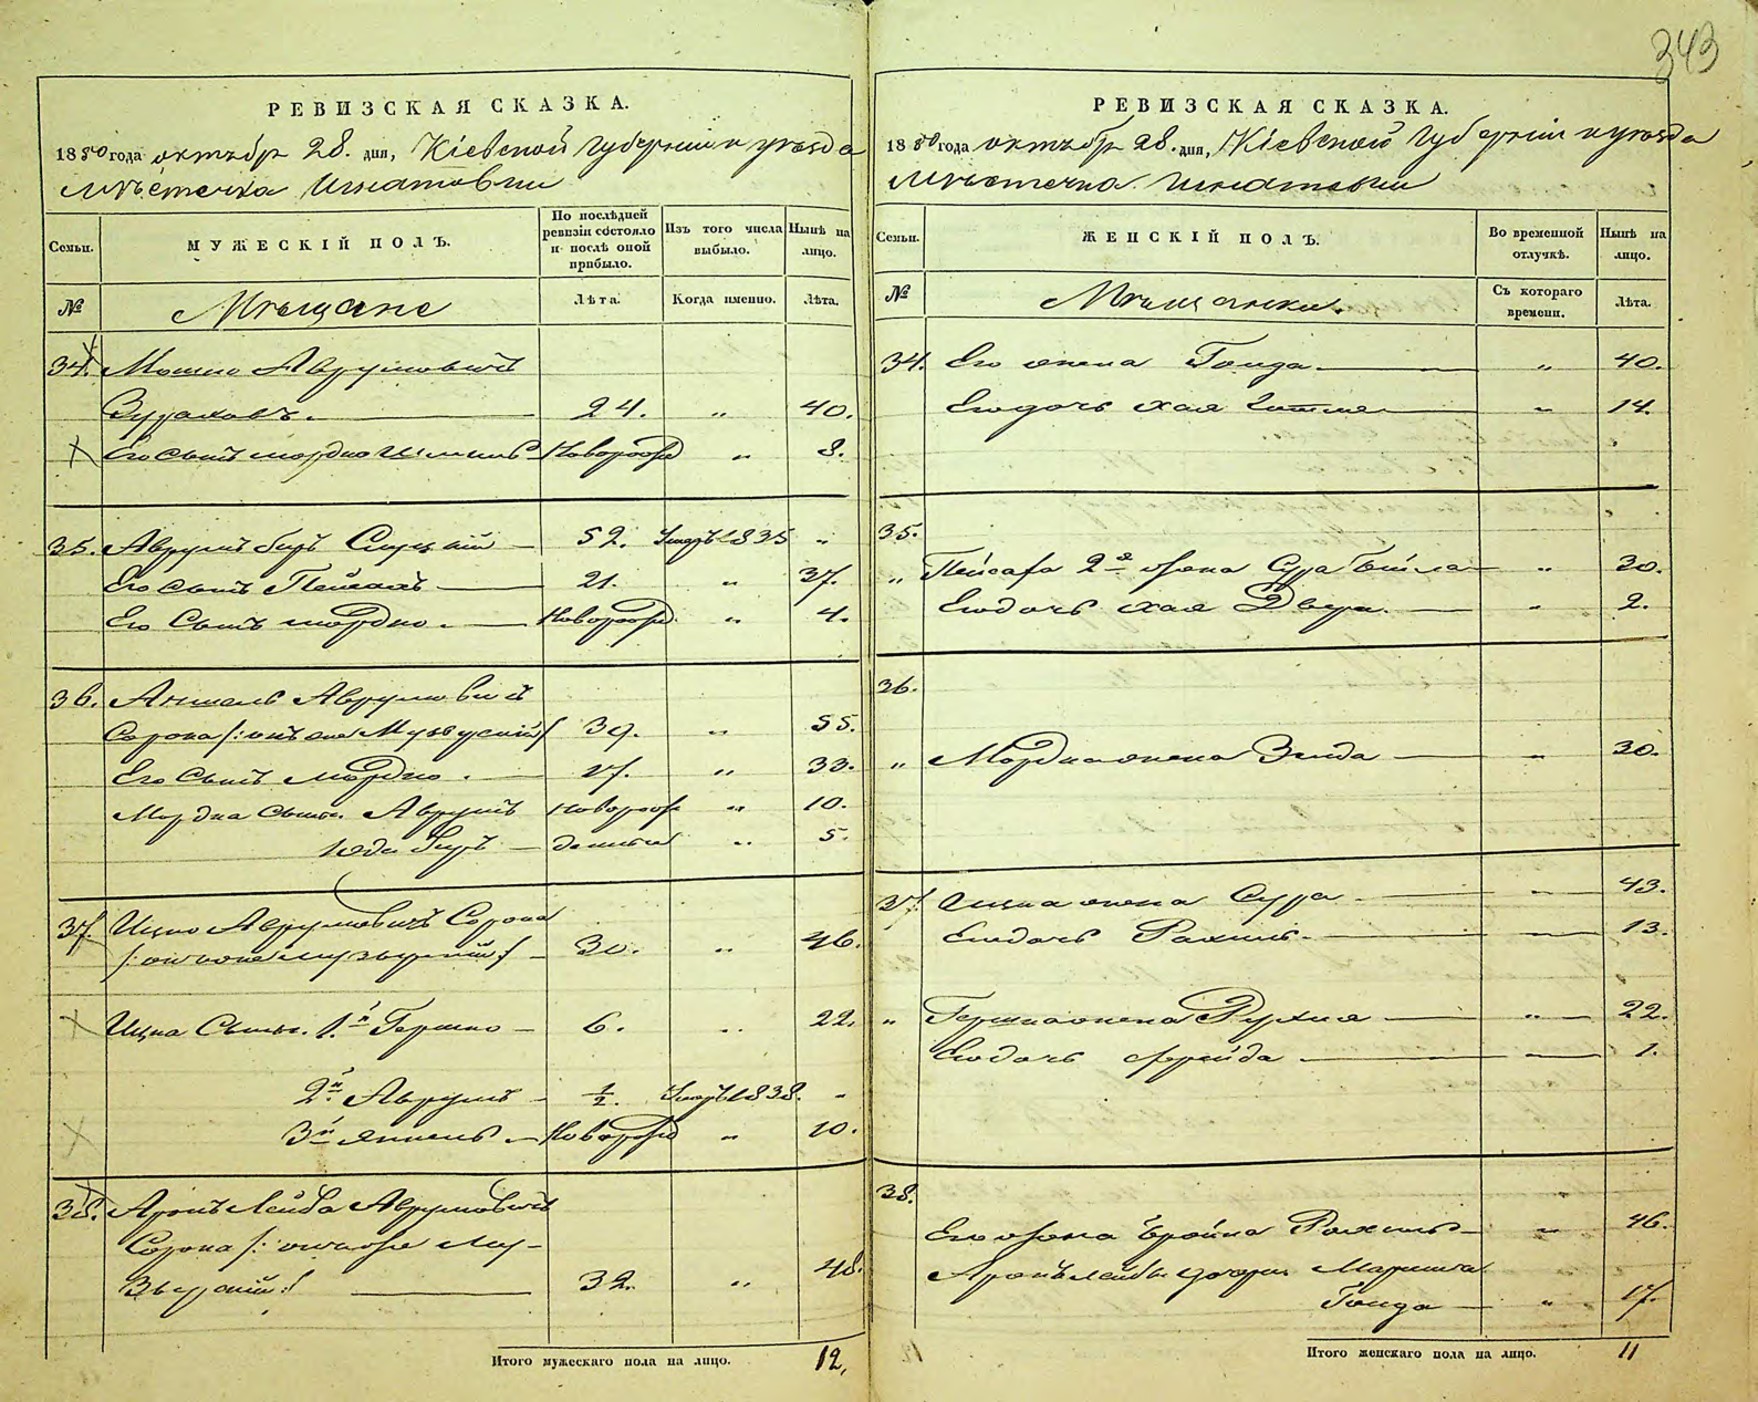 343
РЕВИЗСКАЯ СКАЗКА.
1850 года октября 28. дня, Кіевской Губерніи и уѣзда
мѣстечка Игнатовки
Семьи.
МУЖЕСКІЙ ПОЛЪ.
По послѣдней ревизіи состояло и послѣ оной прибыло.
Изъ того числа выбыло.
Нынѣ на лицо.
№
Мѣщане
Лѣта.
Когда именно.
Лѣта.
34. Мошко Аврумовичъ
24. „ 40.
Его сынъ мордко Новорожд „ 8.
35. Аврумъ Беръ 52. Умеръ 1835 „
Его сынъ Пейсахъ 21. „ 37.
Его Сынъ мордко. Новорожд. „ 4.
36. Аншель Аврумовичъ
Сорока /: онъ же 39. „ 55.
Его Сынъ мордко. 17. „ 33.
Мордка Сынъ. Аврумъ новорож „ 10.
Беръ денный „ 5.
37. Ицко Аврумовичъ Сорока
/: онъ же 30. „ 46.
Ицка Сыны. 1й Гершко 6. „ 22.
2й Аврумъ ½. Умеръ 1838. „
3й Янкель Новорожд „ 10.
38. Аронъ Лейба Аврумовичъ
Сорока /: онъ же Му-
32. „ 48.
Итого мужескаго пола на лицо. 12.
РЕВИЗСКАЯ СКАЗКА.
1850 года октября 28. дня, Кіевской Губерніи и уѣзда
мѣстечка Игнатовки
Семьи.
ЖЕНСКІЙ ПОЛЪ.
Во временной отлучкѣ.
Нынѣ на лицо.
№
Мѣщанки.
Съ котораго времени.
Лѣта.
34. Его жена Голда „ 40.
Его дочь хая „ 14.
35.
„ Пейсаха 2я жена Сура Бейла „ 30.
Его дочь хая Двера. „ 2.
36.
„ Мордка жена Зельда „ 30.
37. Ицка жена Сура „ 43.
Его дочь Рахиль. 13.
„ Гершка жена Рухля „ 22.
Его дочь Фрейда 1.
38.
Его жена Брайна Рахиль „ 46.
Аронъ Лейбы дочери Маріяша
Голда „ 17.
Итого женскаго пола на лицо. 11